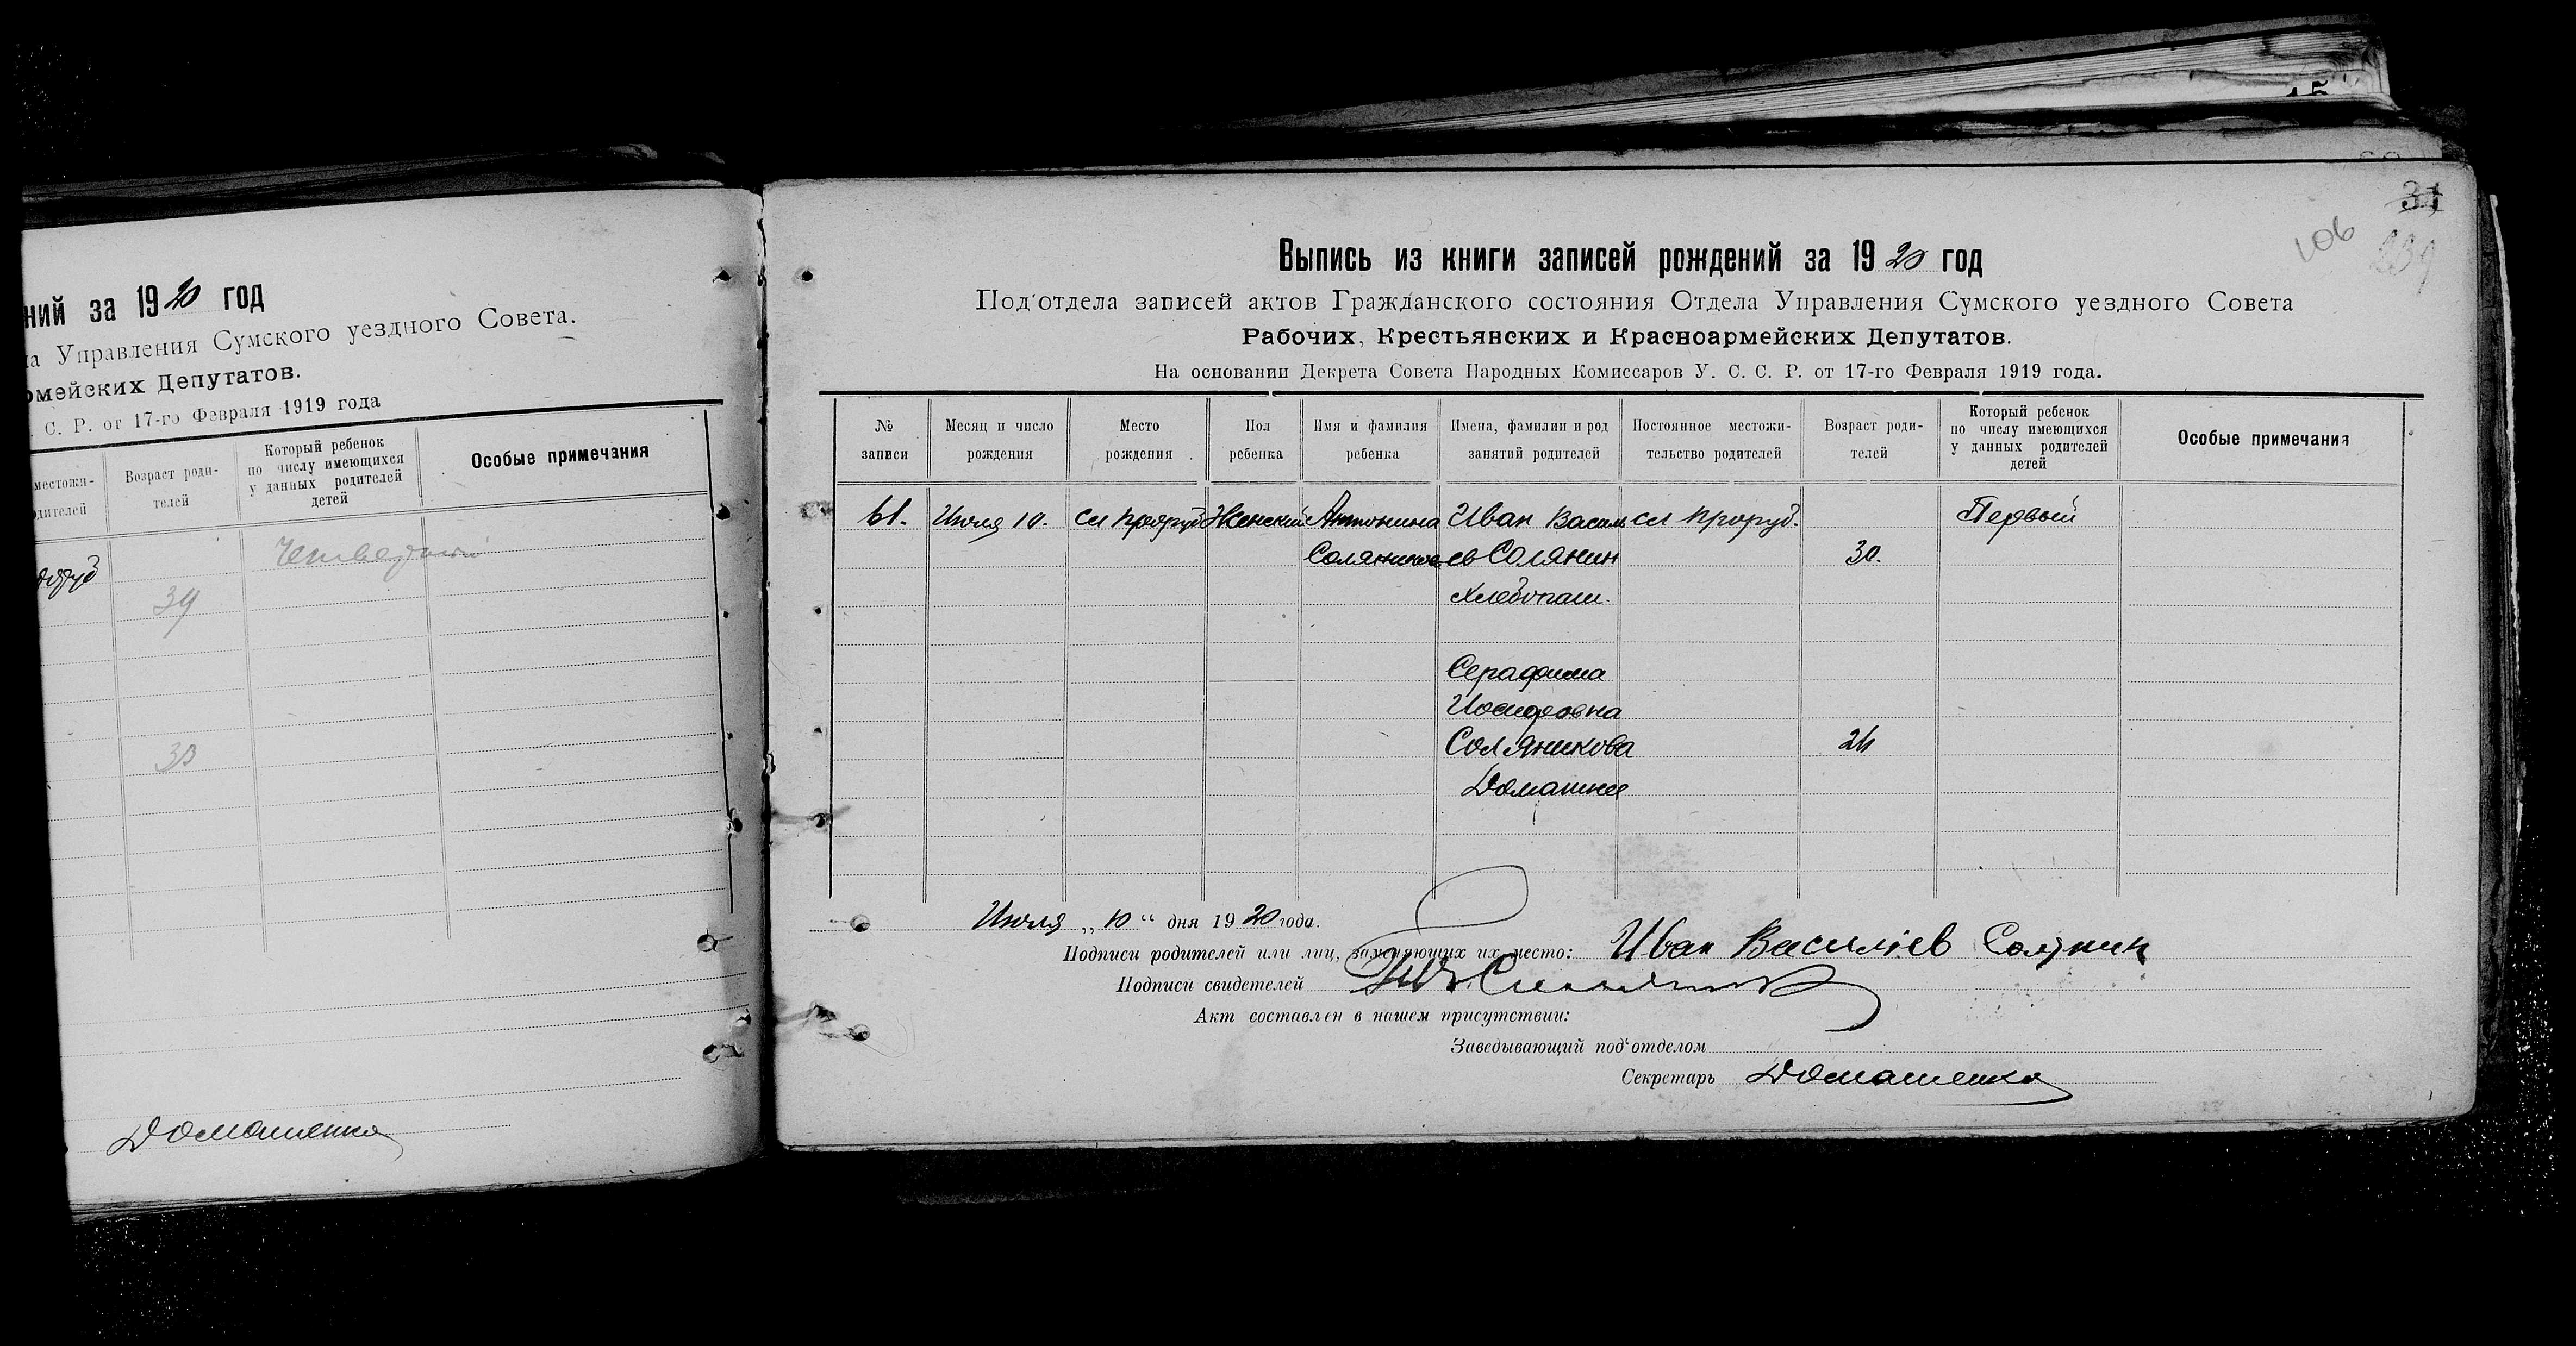 ний за 1920 год
Управления Сумского уездного Совета.
рмейских Депутатов.
С. Р. от 17-го Февраля 1919 года
местожи-
одителей
Возраст роди-
телей
Который ребенок
по числу имеющихся
у данных родителей
детей
Особые примечания
Четвертый
39
30
Домашенко
31
106
239
Выпись из книги записей рождений за 1920 год
Под'отдела записей актов Гражданского состояния Отдела Управления Сумского уездного Совета
Рабочих, Крестьянских и Красноармейских Депутатов.
На основании Декрета Совета Народных Комиссаров У. С. С. Р. от 17-го Февраля 1919 года.
№
записи
Месяц и число
рождения
Место
рождения
Пол
ребенка
Имя и фамилия
ребенка
Имена, фамилии и род
занятий родителей
Постоянное местожи-
тельство родителей
Возраст роди-
телей
Который ребенок
по числу имеющихся
у данных родителей
детей
Особые примечания
61. Июля 10. сл Проруб Женский Антонина Иван Василь сл Проруб. Первый
Соляникова ев Солянин 30.
Хлебопаш.
Серафима
Иосифовна
Соляникова 24
Домашнее
Июля „10“ дня 1920 года.
Подписи родителей или лиц, заменяющих их место: Иван Василіев Солянин
Подписи свидетелей
Акт составлен в нашем присутствии:
Заведывающий под'отделом
Секретарь Домашенко